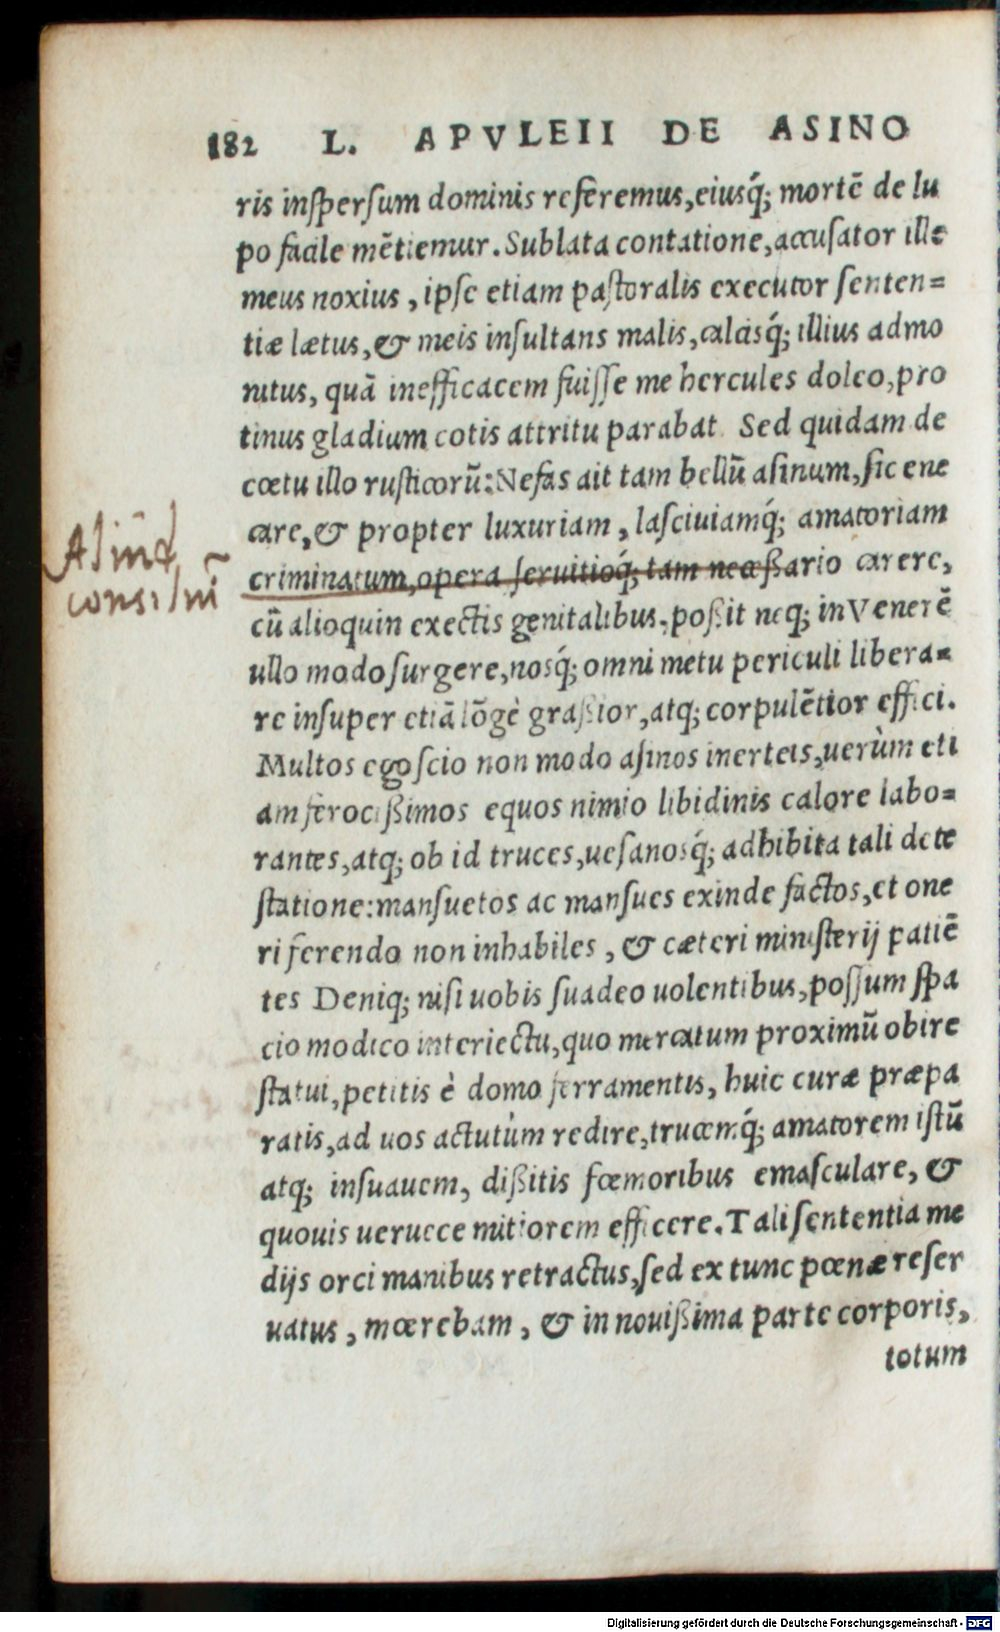 182 L. APVLEII DE ASINO
ris inſperſum dominis referemus, eiusq́; mortē de lu
po facile mētiemur. Sublata contatione, accuſator ille
meus noxius, ipſe etiam paſtoralis executor ſenten=
tiæ lætus, & meis inſultans malis, calcisq́; illius admo
nitus, quā inefficacem fuiſſe me hercules doleo, pro
tinus gladium cotis attritu parabat Sed quidam de
cœtu illo ruſticorū: Nefas ait tam bellū aſinum, ſic ene
care, & propter luxuriam, laſciuiamq́; amatoriam
criminatum, opera ſeruitioq́; tam neceßario carere,
cū alioquin exectis genitalibus, poßit neq; in Venerē
ullo modo ſurgere, nosq́; omni metu periculi libera=
re inſuper etiā lōgè graßior, atq; corpulētior effici.
Multos ego ſcio non modo aſinos inerteis, uerùm eti
am ferocißimos equos nimio libidinis calore labo=
rantes, atq; ob id truces, ueſanosq́; adhibita tali dete
ſtatione: manſuetos ac manſues exinde factos, et one
ri ferendo non inhabiles, & cæteri miniſterij patiē
tes Deniq; niſi uobis ſuadeo uolentibus, poſſum ſpa
cio modico interiectu, quo mercatum proximū obire
ſtatui, petitis è domo ferramentis, huic curæ præpa
ratis, ad uos actutùm redire, trucemq́; amatorem iſtū
atq; inſuauem, dißitis fœmoribus emaſculare, &
quouis uerucce mitiorem efficere. Tali ſententia me
dijs orci manibus retractus, ſed ex tunc pœnæ reſer
uatus, mœrebam, & in nouißima parte corporis,
totum
Digitalisierung gefördert durch die Deutsche Forschungsgemeinschaft - DFG